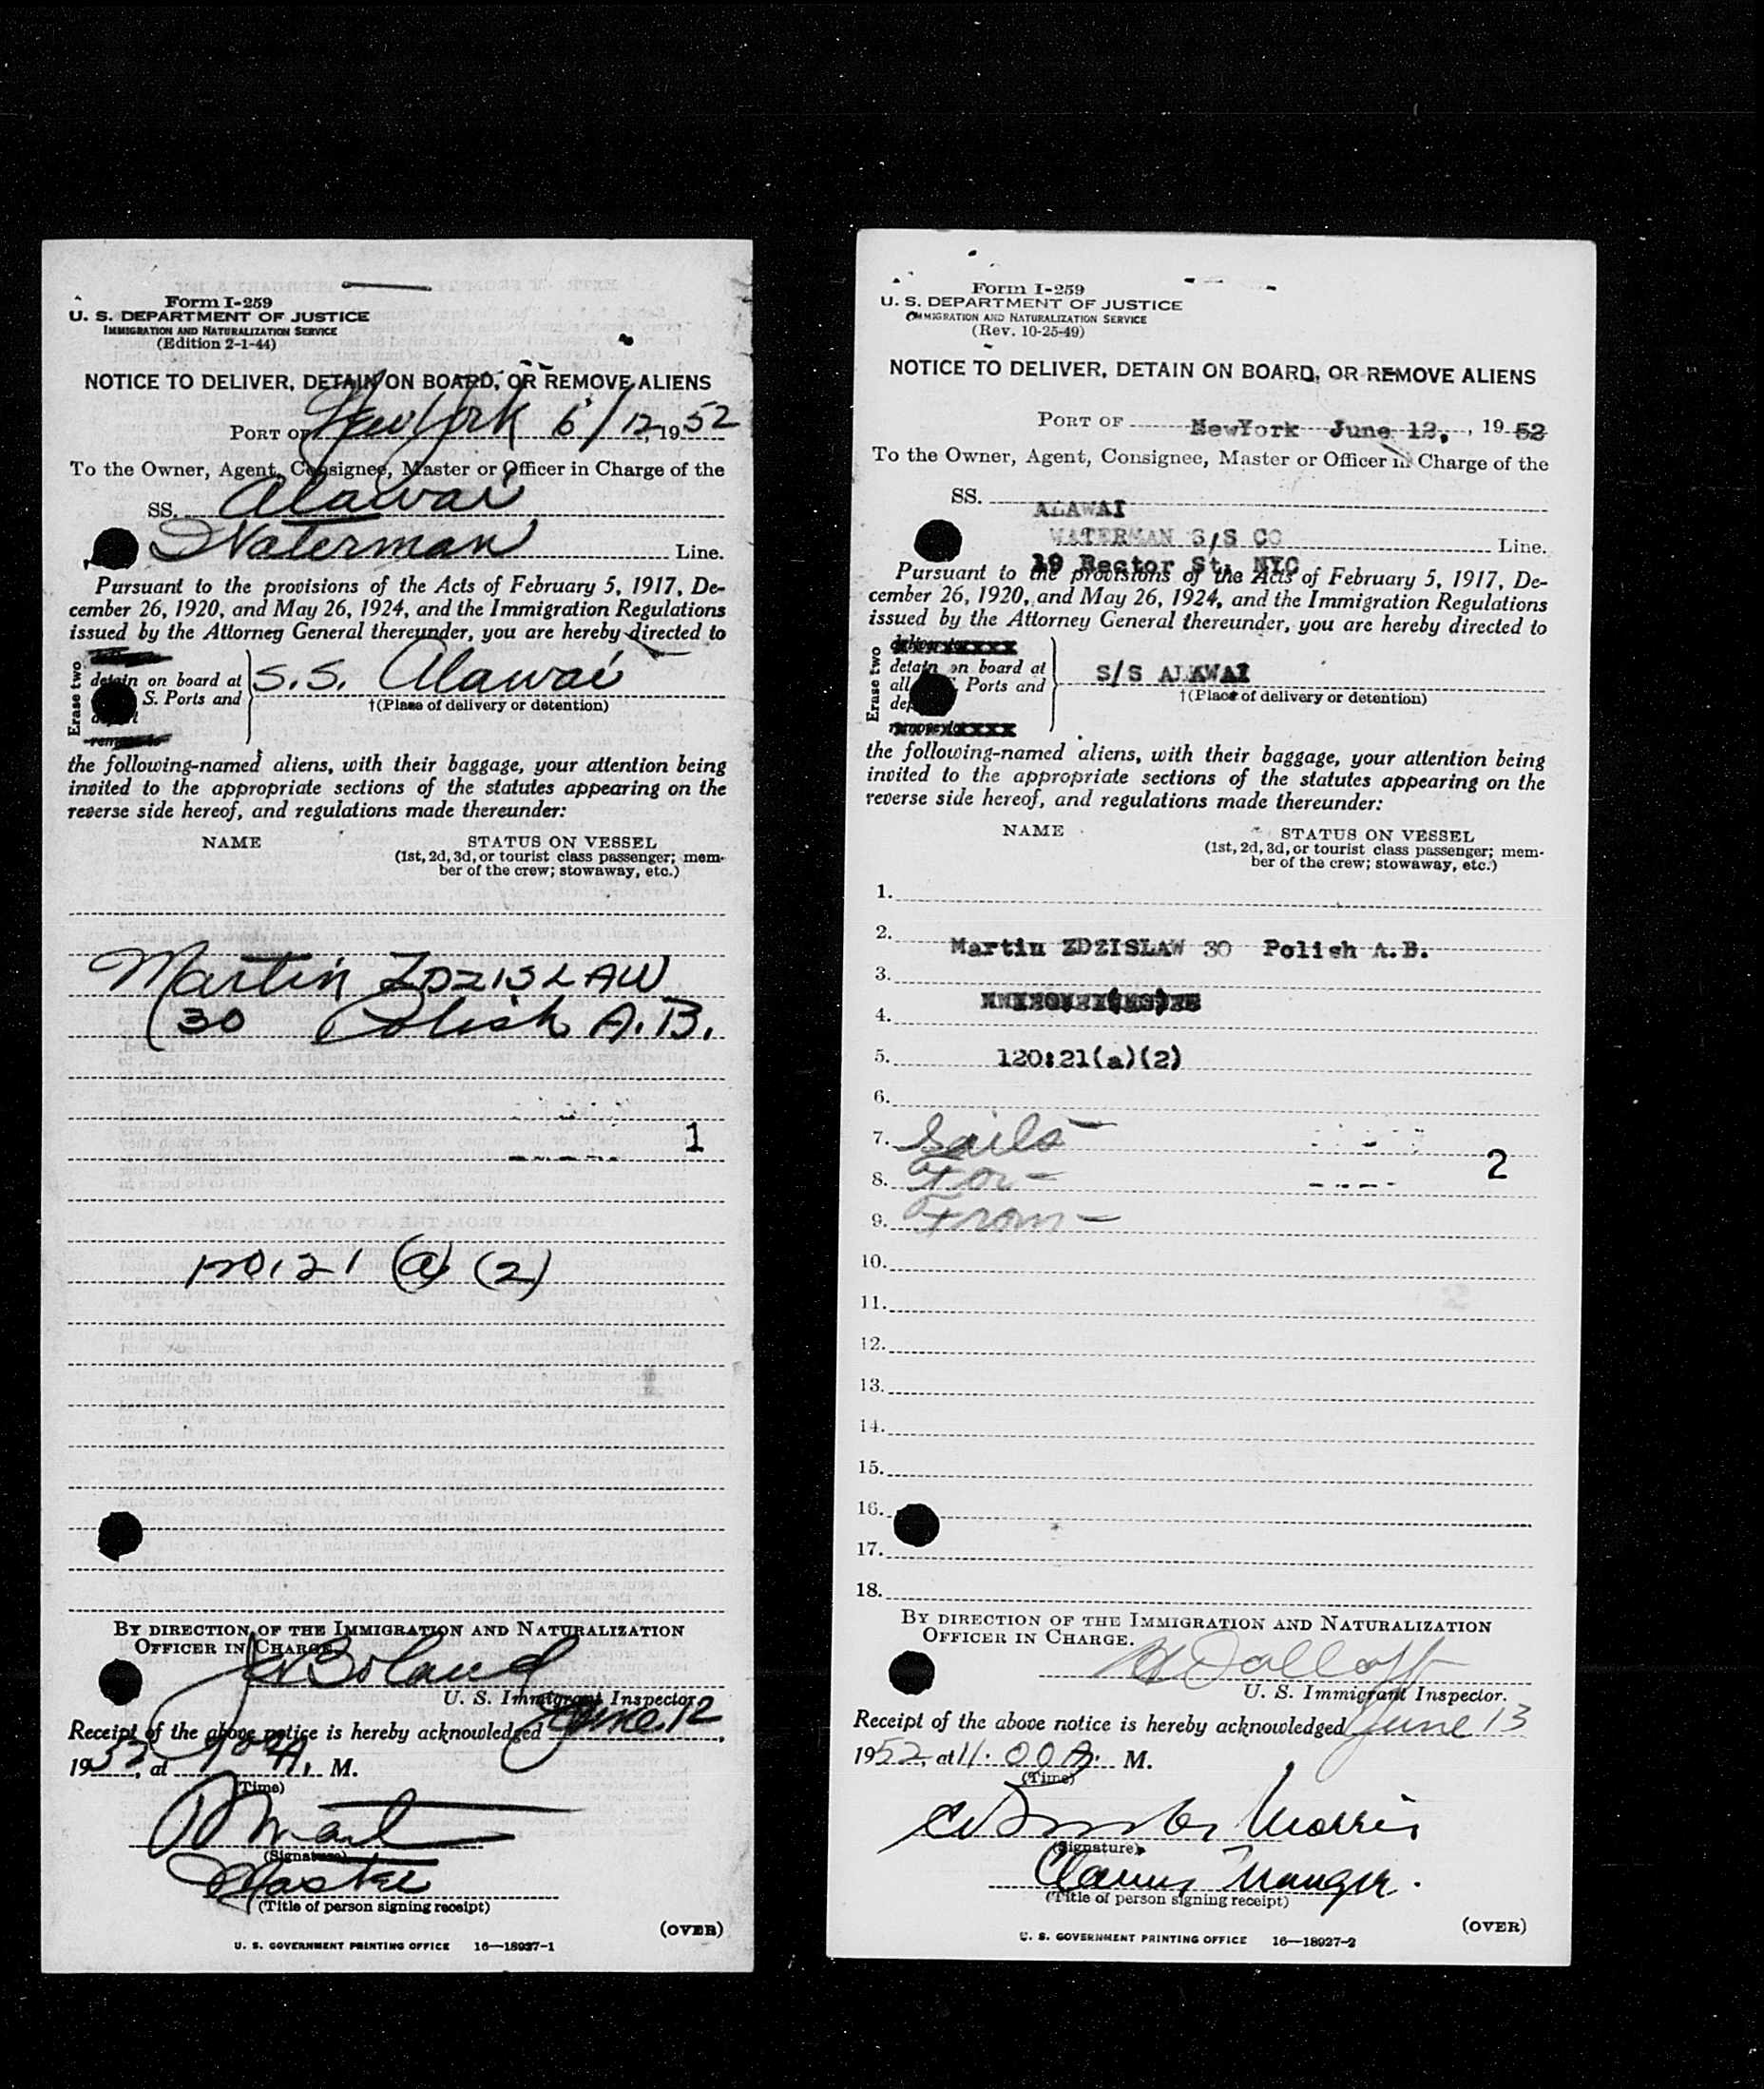 Form I-259
U. S. DEPARTMENT OF JUSTICE
IMMIGRATION AND NATURALIZATION SERVICE
(Edition 2-1-44)
NOTICE TO DELIVER, DETAIN ON BOARD, OR REMOVE ALIENS
PORT OF New York 6/12, 1952
To the Owner, Agent, Consignee, Master or Officer in Charge of the
SS. Alawai
Waterman Line.
Pursuant to the provisions of the Acts of February 5, 1917, De-
cember 26, 1920, and May 26, 1924, and the Immigration Regulations
issued by the Attorney General thereunder, you are hereby directed to
Erase two
detain on board at
S. Ports and
S.S. Alawai
†(Place of delivery or detention)
the following-named aliens, with their baggage, your attention being
invited to the appropriate sections of the statutes appearing on the
reverse side hereof, and regulations made thereunder:
NAME STATUS ON VESSEL
(1st, 2d, 3d, or tourist class passenger; mem-
ber of the crew; stowaway, etc.)
Martin ZDZISLAW
(30 Polish A.B.
1
120.21 (a) (2)
BY DIRECTION OF THE IMMIGRATION AND NATURALIZATION
OFFICER IN CHARGE.
Boland
U. S. Immigrant Inspector.
Receipt of the above notice is hereby acknowledged June 12,
1952, at A. M.
(Time)
(Signature)
Master
(Title of person signing receipt)
(OVER)
U. S. GOVERNMENT PRINTING OFFICE 16—18927-1
Form I-259
U. S. DEPARTMENT OF JUSTICE
IMMIGRATION AND NATURALIZATION SERVICE
(Rev. 10-25-49)
NOTICE TO DELIVER, DETAIN ON BOARD, OR REMOVE ALIENS
PORT OF NewYork June 12, , 1952
To the Owner, Agent, Consignee, Master or Officer in Charge of the
SS. ALAWAI
WATERMAN S/S CO Line.
19 Rector St. NYC
Pursuant to the provisions of the Acts of February 5, 1917, De-
cember 26, 1920, and May 26, 1924, and the Immigration Regulations
issued by the Attorney General thereunder, you are hereby directed to
Erase two
detain on board at
all Ports and
S/S ALAWAI
†(Place of delivery or detention)
the following-named aliens, with their baggage, your attention being
invited to the appropriate sections of the statutes appearing on the
reverse side hereof, and regulations made thereunder:
NAME STATUS ON VESSEL
(1st, 2d, 3d, or tourist class passenger; mem-
ber of the crew; stowaway, etc.)
1.
2. Martin ZDZISLAW 30 Polish A.B.
3.
4.
5. 120:21(a)(2)
6.
7. Sails-
2
8. For-
9. From-
10.
11.
12.
13.
14.
15.
16.
17.
18.
BY DIRECTION OF THE IMMIGRATION AND NATURALIZATION
OFFICER IN CHARGE.
U. S. Immigrant Inspector.
Receipt of the above notice is hereby acknowledged June 13
1952, at 11.00 A. M.
(Time)
Morris
(Signature)
(Title of person signing receipt)
(OVER)
U. S. GOVERNMENT PRINTING OFFICE 16—18927-2